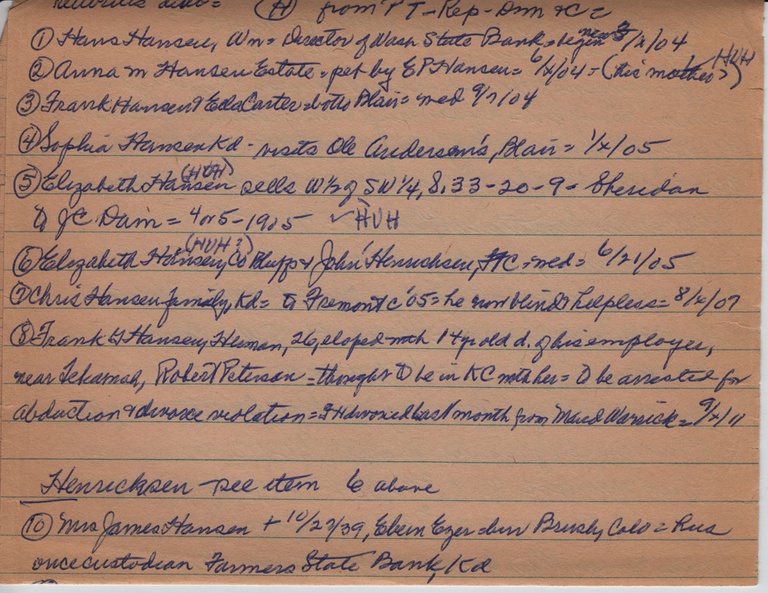 (H) from PT-Rep-Dnn & C =
① Hans Hansen, Wn = Director of Wash State Bank = begin new 3/x/04
② Anna M Hansen Estate = pet by EP Hansen = 6/x/04 - (this mother?) HVH
③ Frank Hansen & Ella Carter = both Blair = med 9/7/04
④ Sophia Hansen Kd - visits Ole Anderson's, Blair = 1/x/05
⑤ Elizabeth Hansen (HVH) sells W½ of SW¼, 8,33-20-9 = Sheridan
to JC Dam = 4 or 5-1905 ✓ HVH
⑥ Elizabeth Hansen, (HVH?) Co Bluffs & John Henricksen, FtC = med = 6/21/05
⑦ Chris Hansen family, Kd = to Fremont c '05 = he now blind & helpless = 8/x/07
⑧ Frank G Hansen, Herman, 26, eloped with 14 yr old d. of his employer,
near Tekamah, Robert Peterson = thought to be in KC with her = to be arrested for
abduction & divorce violation = FH divorced last month from Maud Warrick = 9/x/11
Henricksen - see item 6 above
⑩ Mrs James Hansen + 10/27/39, Eben Ezer = bur Brush, Colo = Hus
once custodian Farmers State Bank, Kd